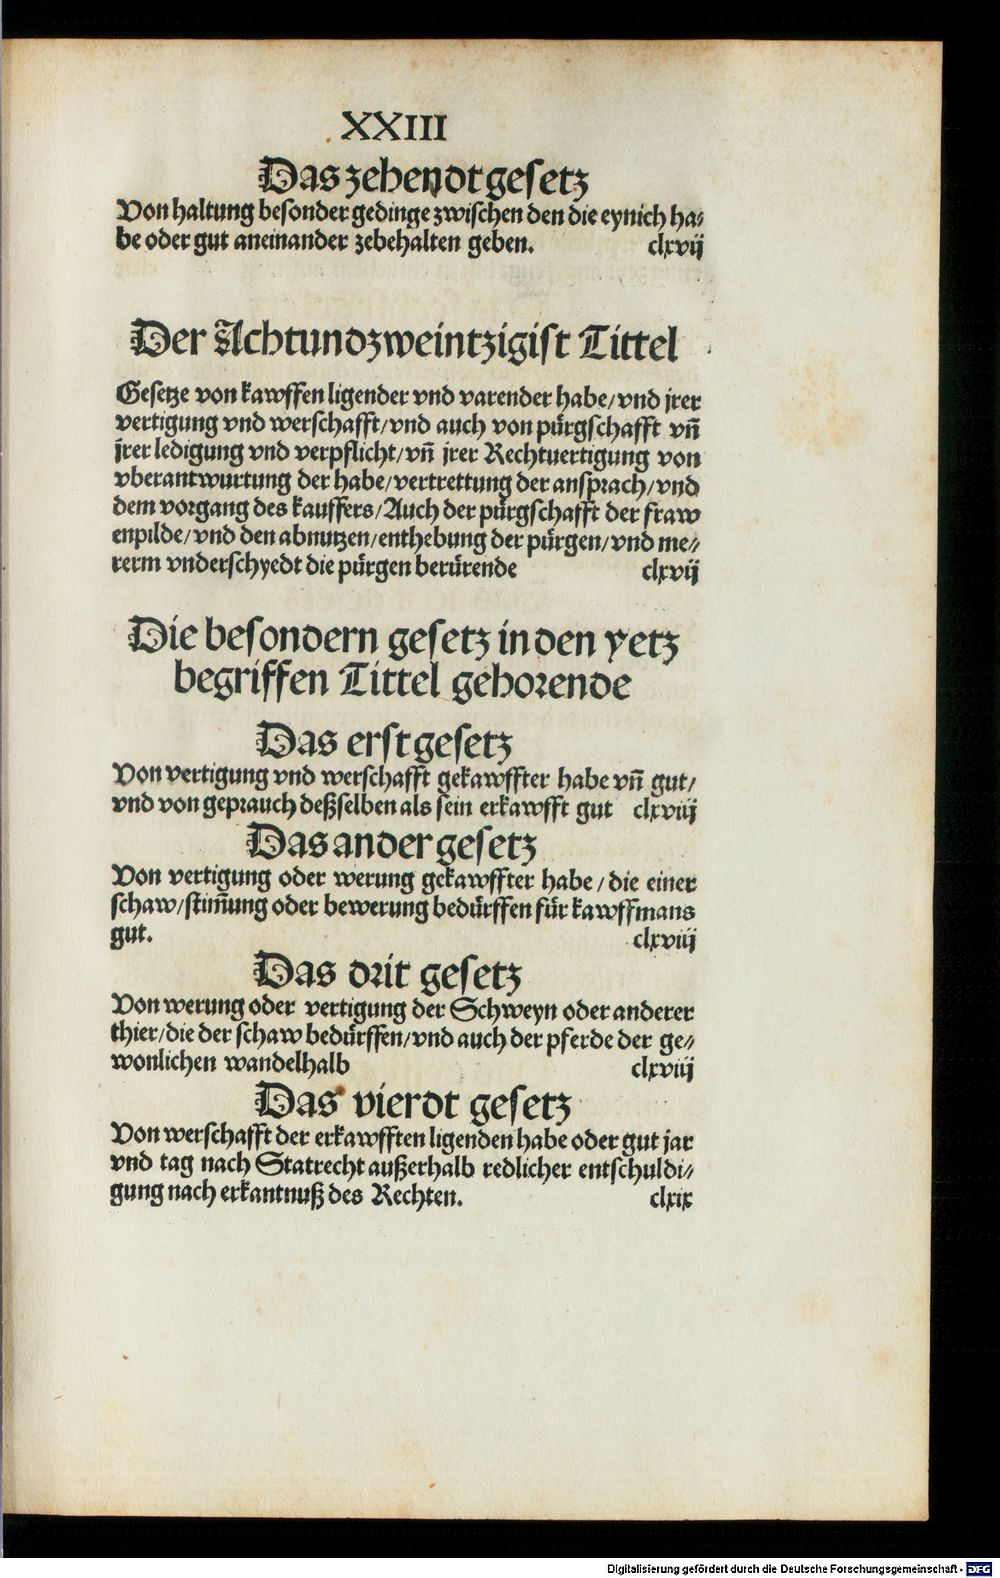 XXIII
Das zehendt gesetz
Von haltung besonder gedinge zwischen den die eynich ha⸗
be oder gut aneinander zebehalten geben. clxvij
Der Achtundzweintzigist Tittel
Gesetze von kawffen ligender vnd varender habe/vnd jrer
vertigung vnd werschafft/vnd auch von pürgschafft vn̄
jrer ledigung vnd verpflicht/vn̄ jrer Rechtuertigung von
vberantwurtung der habe/vertrettung der ansprach/vnd
dem vorgang des kauffers/Auch der pürgschafft der fraw
enpilde/vnd den abnutzen/enthebung der pürgen/vnd me⸗
rerm vnderschyedt die pürgen berürende clxvij
Die besondern gesetz in den yetz
begriffen Tittel gehorende
Das erst gesetz
Von vertigung vnd werschafft gekawffter habe vn̄ gut/
vnd von geprauch deßselben als sein erkawfft gut clxviij
Das ander gesetz
Von vertigung oder werung gekawffter habe/die einer
schaw/stim̄ung oder bewerung bedürffen für kawffmans
gut. clxviij
Das drit gesetz
Von werung oder vertigung der Schweyn oder anderer
thier/die der schaw bedürffen/vnd auch der pferde der ge⸗
wonlichen wandelhalb clxviij
Das vierdt gesetz
Von werschafft der erkawfften ligenden habe oder gut jar
vnd tag nach Statrecht außerhalb redlicher entschuldi⸗
gung nach erkantnuß des Rechten. clxix
Digitalisierung gefördert durch die Deutsche Forschungsgemeinschaft - DFG